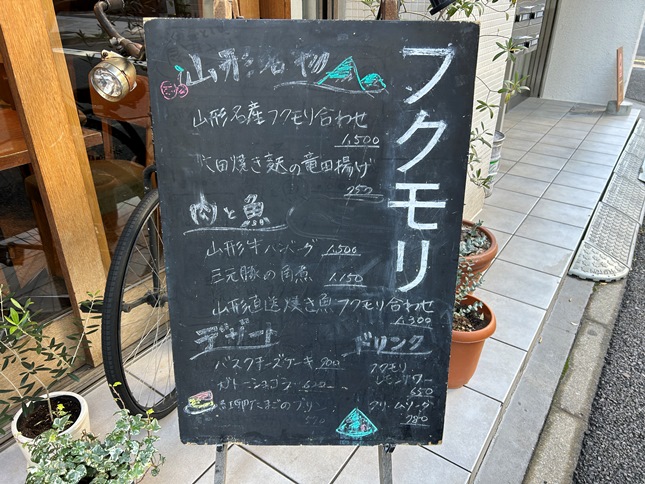 フクモリ
山形名物
山形名産フクモリ合わせ
1,500
焼き麩の竜田揚げ
250
肉と魚
山形牛ハンバーグ 1,500
三元豚の角煮 1,150
山形直送焼き魚フクモリ合わせ
1,300
デザート
バスクチーズケーキ 900
ガトーショコラ
たまごのプリン
ドリンク
フクモリ
レモンサワー
650
クリームソーダ
780